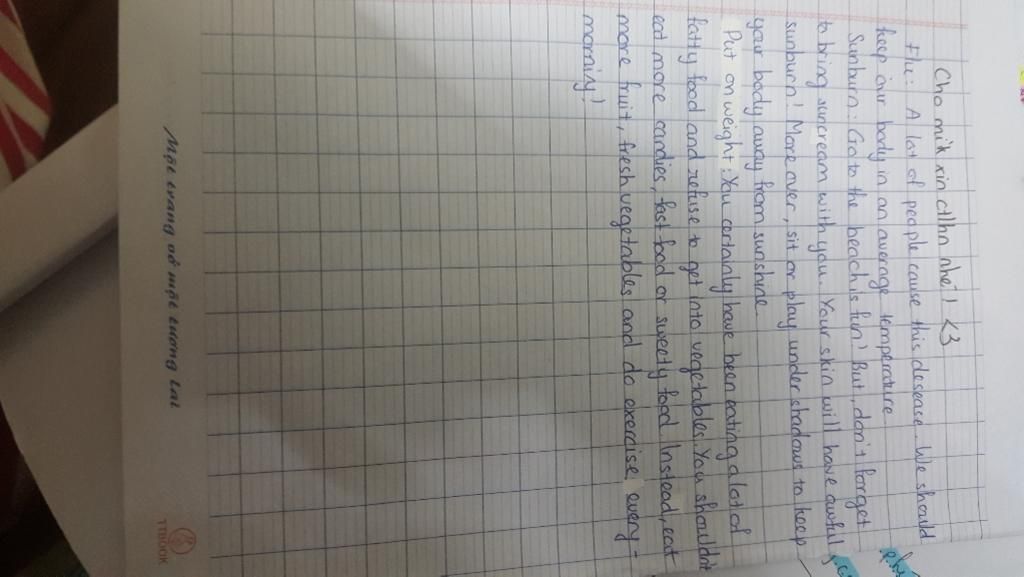 Cho mik xin ctlhn nhé! <3
Flu: A lot of people cause this desease. We should
keep our body in an average temperature
Sunburn: Go to the beach is fun! But, don't forget
to bring suncream with you. Your skin will have awful
sunburn! More over, sit or play under shadows to keep
your body away from sunshine.
Put on weight: You certainly have been eating a lot of
fatty food and refuse to get into vegetables. You shouldn't
eat more candies, fast food or sweety food. Instead, eat
more fruit, fresh vegetables and do exercise every-
morning!
Một trang vở một tương lai
TTBOOK